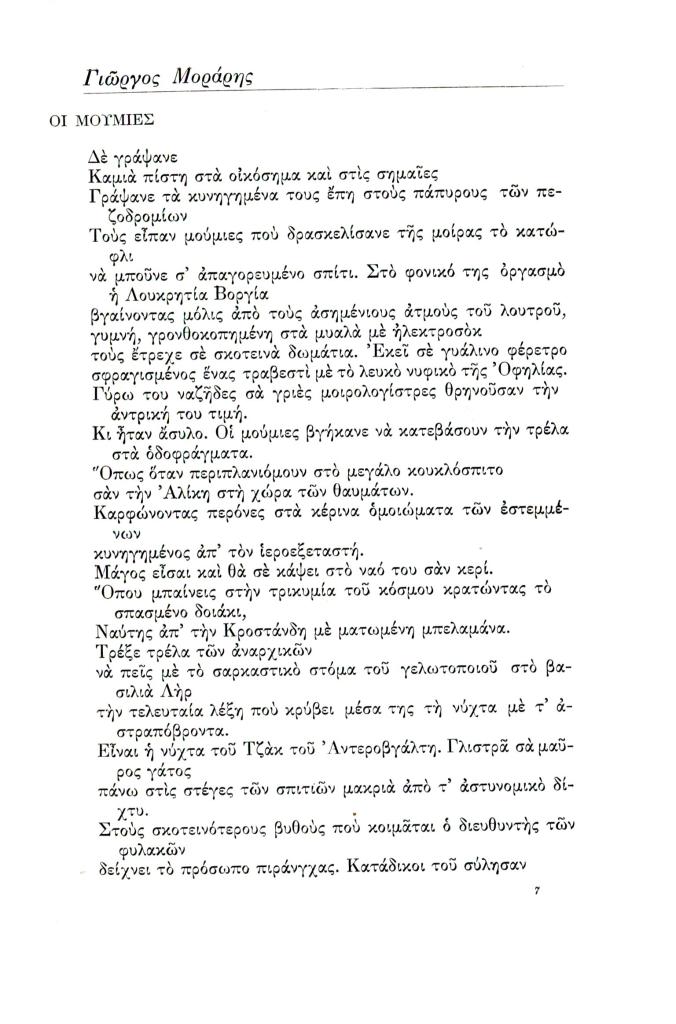 Γιῶργος Μοράρης
ΟΙ ΜΟΥΜΙΕΣ
Δὲ γράψανε
Καμιὰ πίστη στὰ οἰκόσημα καὶ στὶς σημαῖες
Γράψανε τὰ κυνηγημένα τους ἔπη στοὺς πάπυρους τῶν πε-
ζοδρομίων
Τοὺς εἶπαν μούμιες ποὺ δρασκελίσανε τῆς μοίρας τὸ κατώ-
φλι
νὰ μποῦνε σ’ ἀπαγορευμένο σπίτι. Στὸ φονικό της ὀργασμὸ
ἡ Λουκρητία Βοργία
βγαίνοντας μόλις ἀπὸ τοὺς ἀσημένιους ἀτμοὺς τοῦ λουτροῦ,
γυμνή, γρονθοκοπημένη στὰ μυαλὰ μὲ ἠλεκτροσὸκ
τοὺς ἔτρεχε σὲ σκοτεινὰ δωμάτια. Ἐκεῖ σὲ γυάλινο φέρετρο
σφραγισμένος ἕνας τραβεστὶ μὲ τὸ λευκὸ νυφικὸ τῆς Ὀφηλίας.
Γύρω του ναζῆδες σὰ γριὲς μοιρολογίστρες θρηνοῦσαν τὴν
ἀντρική του τιμή.
Κι ἦταν ἄσυλο. Οἱ μούμιες βγήκανε νὰ κατεβάσουν τὴν τρέλα
στὰ ὁδοφράγματα.
Ὅπως ὅταν περιπλανιόμουν στὸ μεγάλο κουκλόσπιτο
σὰν τὴν Ἀλίκη στὴ χώρα τῶν θαυμάτων.
Καρφώνοντας περόνες στὰ κέρινα ὁμοιώματα τῶν ἐστεμμέ-
νων
κυνηγημένος ἀπ’ τὸν ἱεροεξεταστή.
Μάγος εἶσαι καὶ θὰ σὲ κάψει στὸ ναό του σὰν κερί.
Ὅπου μπαίνεις στὴν τρικυμία τοῦ κόσμου κρατώντας τὸ
σπασμένο δοιάκι,
Ναύτης ἀπ’ τὴν Κροστάνδη μὲ ματωμένη μπελαμάνα.
Τρέξε τρέλα τῶν ἀναρχικῶν
νὰ πεῖς μὲ τὸ σαρκαστικὸ στόμα τοῦ γελωτοποιοῦ στὸ βα-
σιλιὰ Λὴρ
τὴν τελευταία λέξη ποὺ κρύβει μέσα της τὴ νύχτα μὲ τ’ ἀ-
στραπόβροντα.
Εἶναι ἡ νύχτα τοῦ Τζὰκ τοῦ Ἀντεροβγάλτη. Γλιστρᾶ σὰ μαῦ-
ρος γάτος
πάνω στὶς στέγες τῶν σπιτιῶν μακριὰ ἀπὸ τ’ ἀστυνομικὸ δί-
χτυ.
Στοὺς σκοτεινότερους βυθοὺς ποὺ κοιμᾶται ὁ διευθυντὴς τῶν
φυλακῶν
δείχνει τὸ πρόσωπο πιράνγχας. Κατάδικοι τοῦ σύλησαν
7